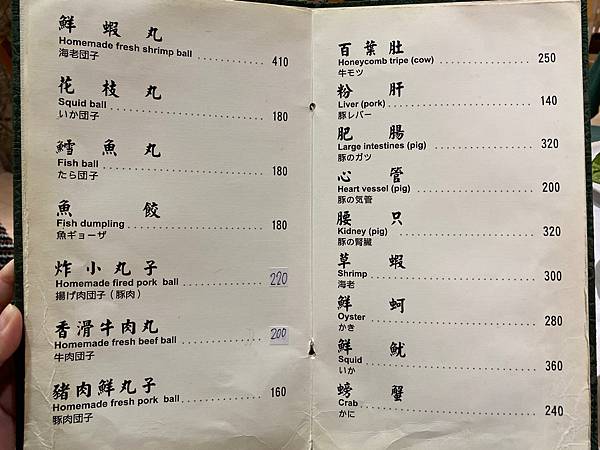 鮮蝦丸
Homemade fresh shrimp ball 410
海老団子
花枝丸
Squid ball 180
いか団子
鱈魚丸
Fish ball 180
たら団子
魚餃
Fish dumpling 180
魚ギョーザ
炸小丸子
Homemade fired pork ball 220
揚げ肉団子（豚肉）
香滑牛肉丸
Homemade fresh beef ball 200
牛肉団子
豬肉鮮丸子
Homemade fresh pork ball 160
豚肉団子
百葉肚
Honeycomb tripe (cow) 250
牛モツ
粉肝
Liver (pork) 140
豚レバー
肥腸
Large intestines (pig) 320
豚のガツ
心管
Heart vessel (pig) 200
豚の気管
腰只
Kidney (pig) 320
豚の腎臓
草蝦
Shrimp 300
海老
鮮蚵
Oyster 280
かき
鮮魷
Squid 360
いか
螃蟹
Crab 240
かに